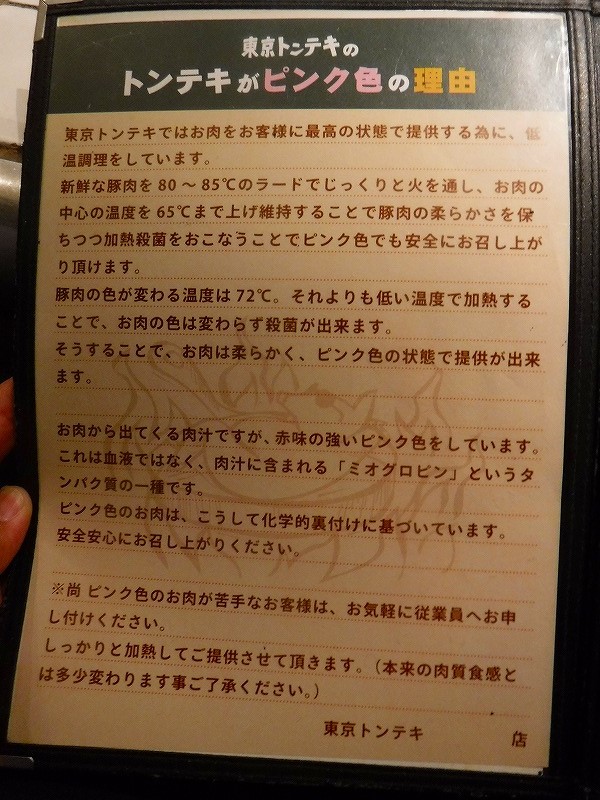 東京トンテキの
トンテキがピンク色の理由
東京トンテキではお肉をお客様に最高の状態で提供する為に、低
温調理をしています。
新鮮な豚肉を 80 ～ 85℃のラードでじっくりと火を通し、お肉の
中心の温度を 65℃まで上げ維持することで豚肉の柔らかさを保
ちつつ加熱殺菌をおこなうことでピンク色でも安全にお召し上が
り頂けます。
豚肉の色が変わる温度は 72℃。それよりも低い温度で加熱する
ことで、お肉の色は変わらず殺菌が出来ます。
そうすることで、お肉は柔らかく、ピンク色の状態で提供が出来
ます。
お肉から出てくる肉汁ですが、赤味の強いピンク色をしています。
これは血液ではなく、肉汁に含まれる「ミオグロビン」というタ
ンパク質の一種です。
ピンク色のお肉は、こうして化学的裏付けに基づいています。
安全安心にお召し上がりください。
※尚 ピンク色のお肉が苦手なお客様は、お気軽に従業員へお申
し付けください。
しっかりと加熱してご提供させて頂きます。（本来の肉質食感と
は多少変わります事ご了承ください。）
東京トンテキ 店